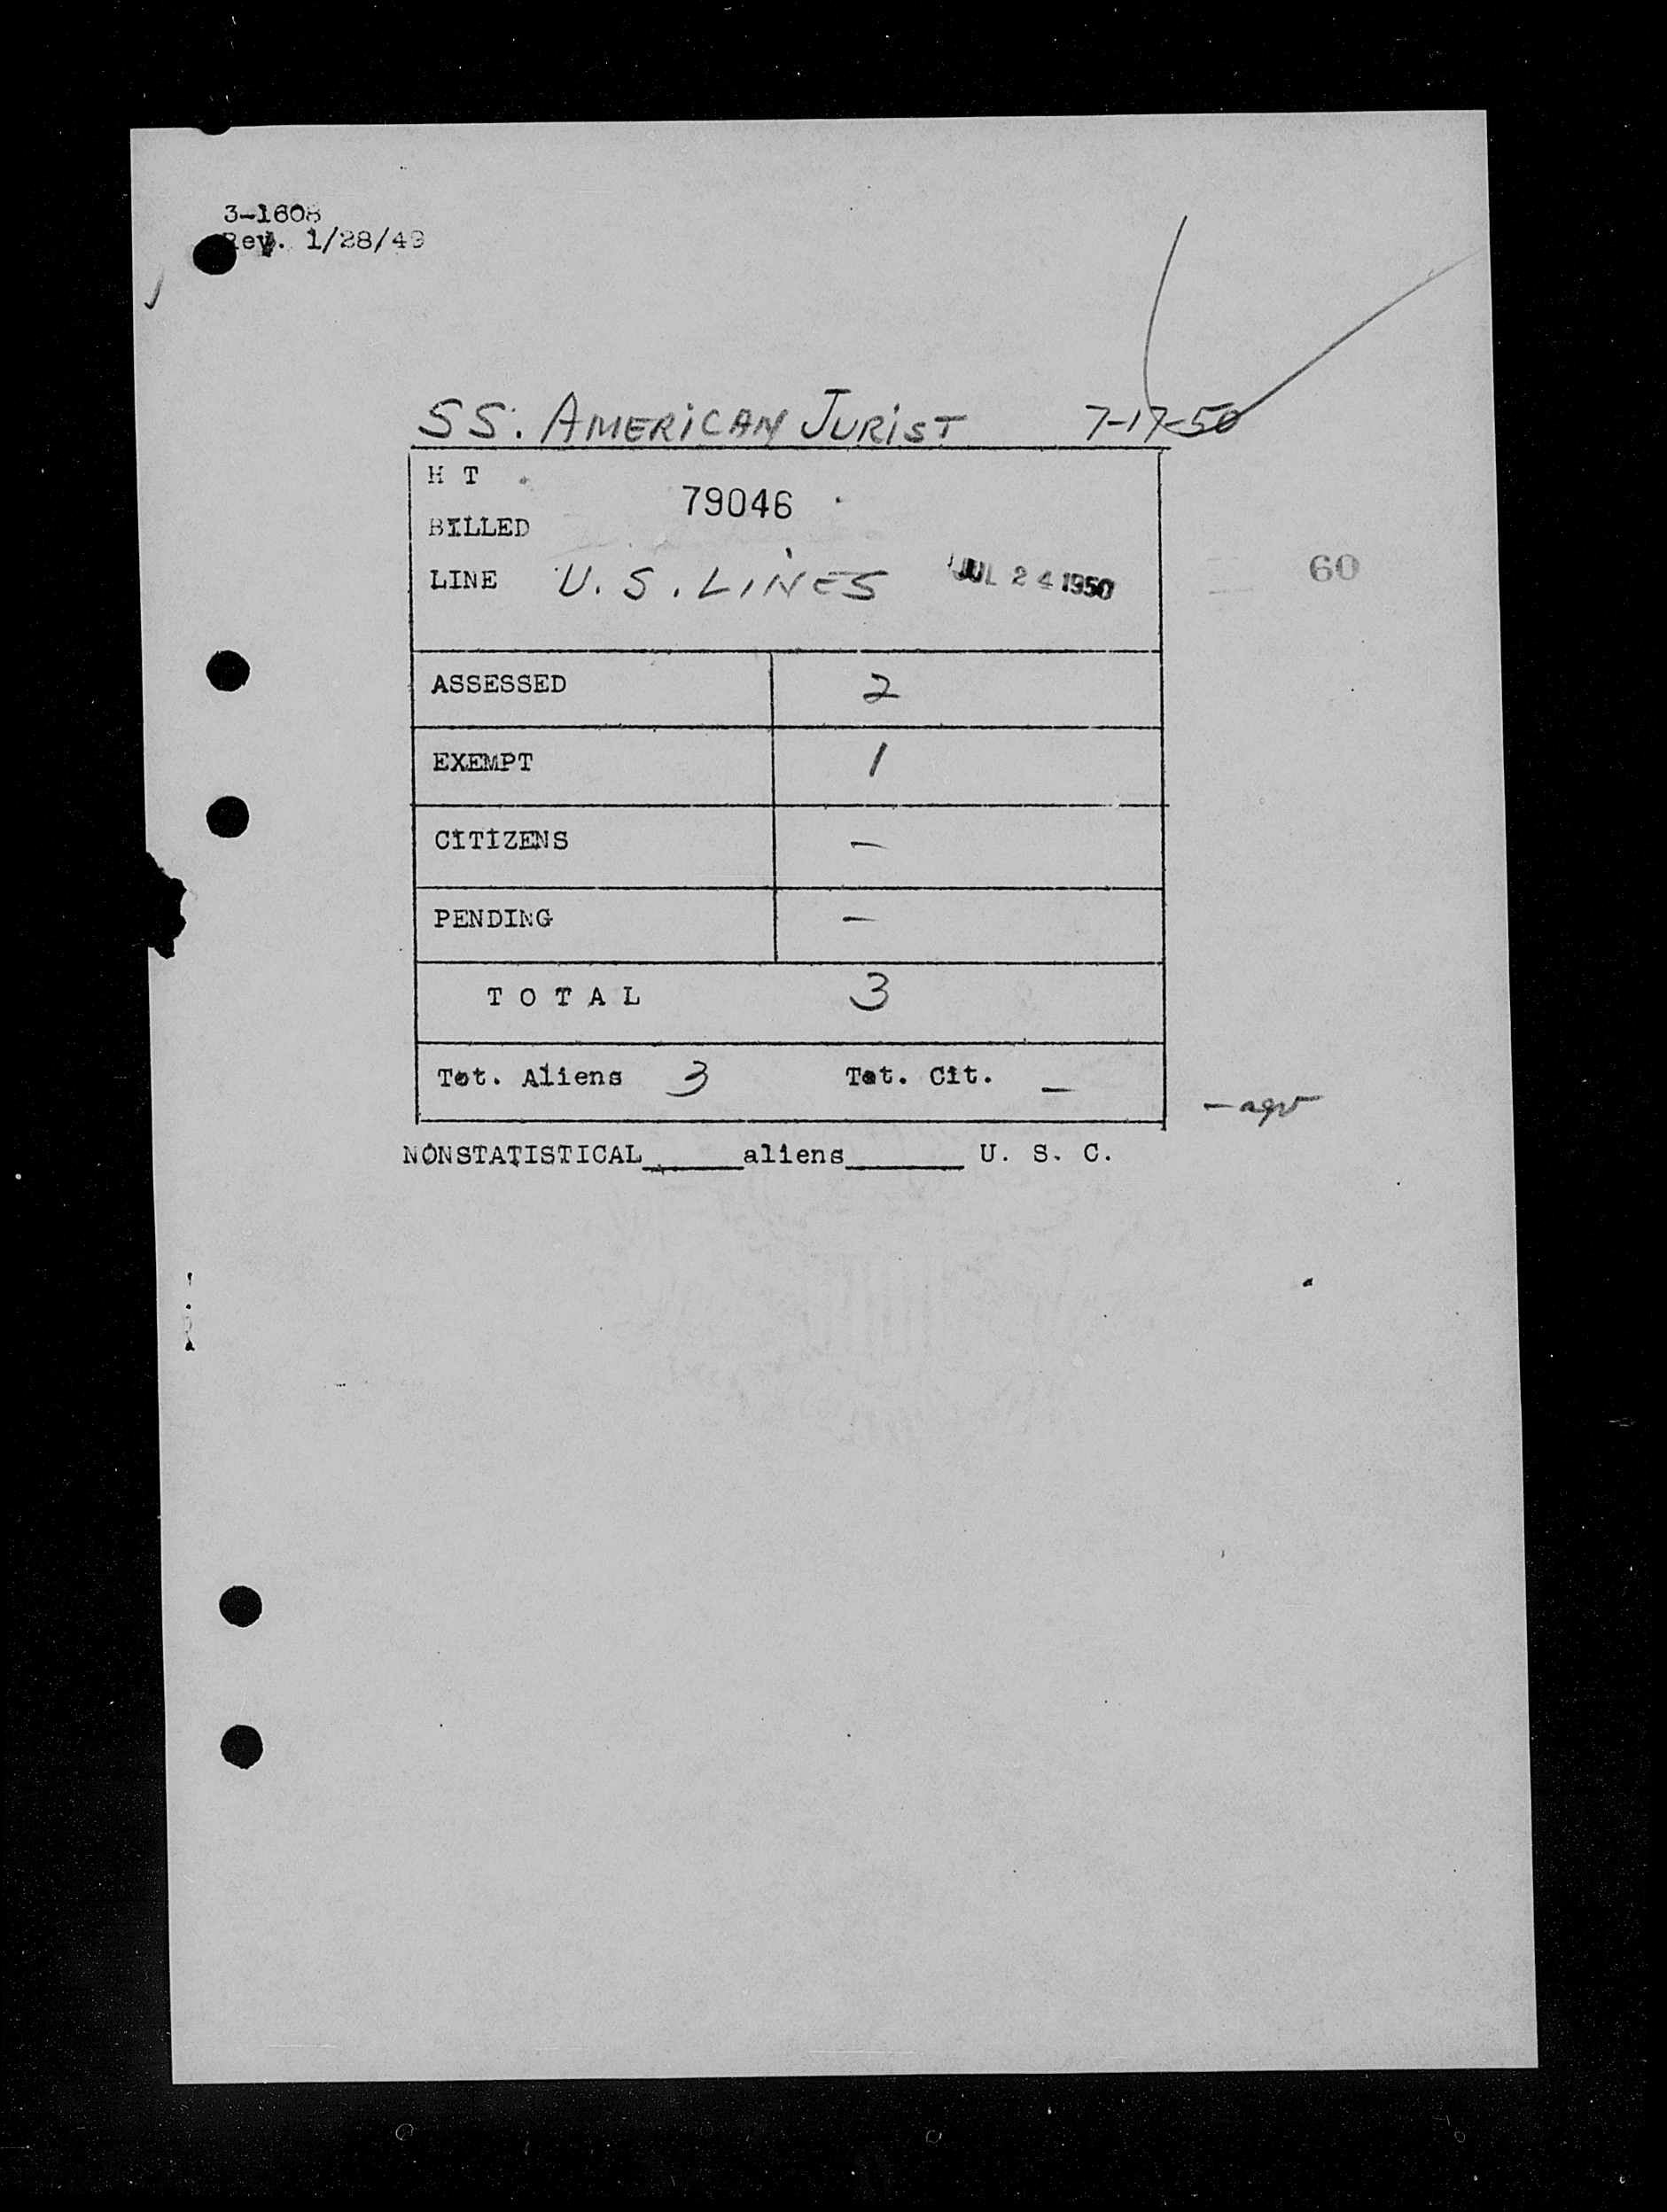 3-1608
Rev. 1/28/49
SS. AMERICAN JURIST 7-17-50
H T
79046
BILLED
LINE U. S. LINES JUL 24 1950
60
ASSESSED 2
EXEMPT 1
CITIZENS –
PENDING –
T O T A L 3
Tot. Aliens 3 Tot. Cit. –
NONSTATISTICAL______aliens_______ U. S. C.